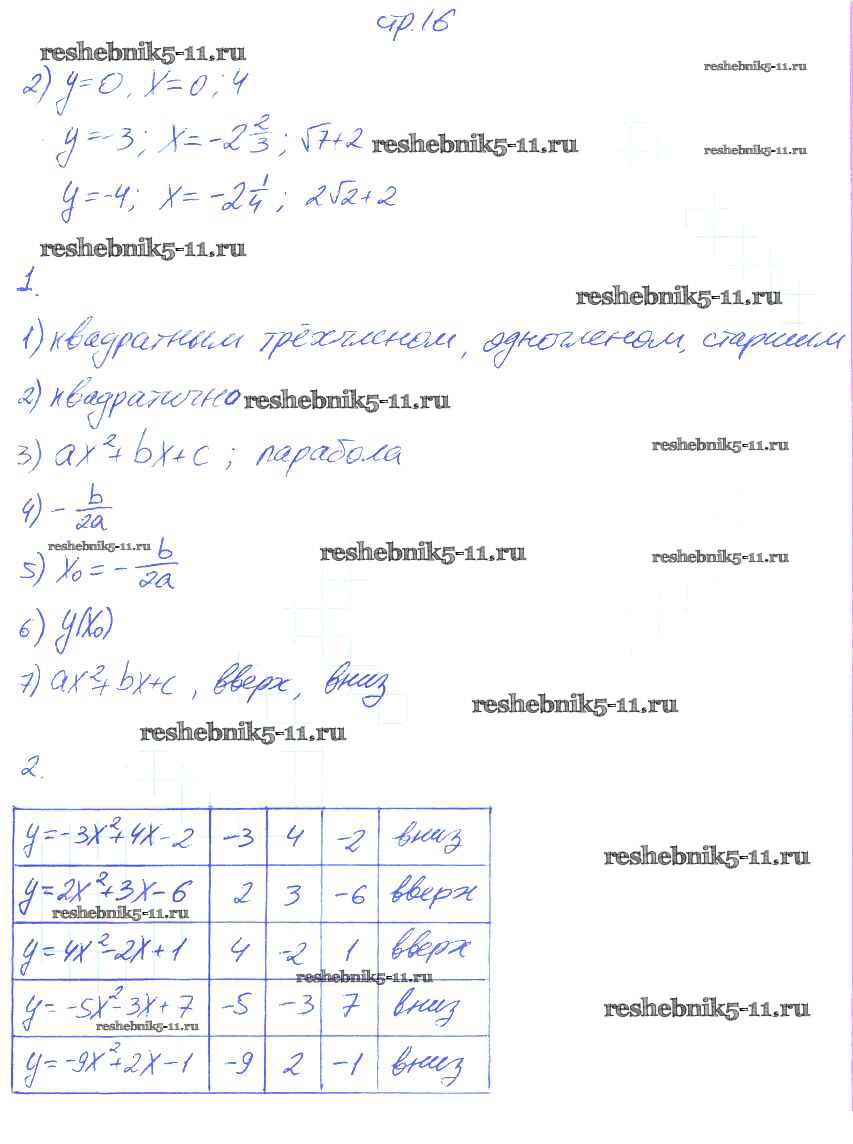 стр.16
reshebnik5-11.ru
reshebnik5-11.ru
2) y=0, x=0; 4
y=-3; x=-2 2/3; √7+2 reshebnik5-11.ru
reshebnik5-11.ru
y=-4; x=-2 1/4; 2√2+2
reshebnik5-11.ru
1.
reshebnik5-11.ru
1) квадратным трёхчленом, одночленом, старшим
2) квадратично reshebnik5-11.ru
3) ax²+bx+c; парабола
reshebnik5-11.ru
4) - b/2a
reshebnik5-11.ru
reshebnik5-11.ru
reshebnik5-11.ru
5) x₀ = - b/2a
6) y(x₀)
7) ax²+bx+c, вверх, вниз
reshebnik5-11.ru
reshebnik5-11.ru
2.
y=-3x²+4x-2 -3 4 -2 вниз
reshebnik5-11.ru
y=2x²+3x-6 2 3 -6 вверх
reshebnik5-11.ru
y=4x²-2x+1 4 -2 1 вверх
reshebnik5-11.ru
y=-5x²-3x+7 -5 -3 7 вниз
reshebnik5-11.ru
reshebnik5-11.ru
y=-9x²+2x-1 -9 2 -1 вниз